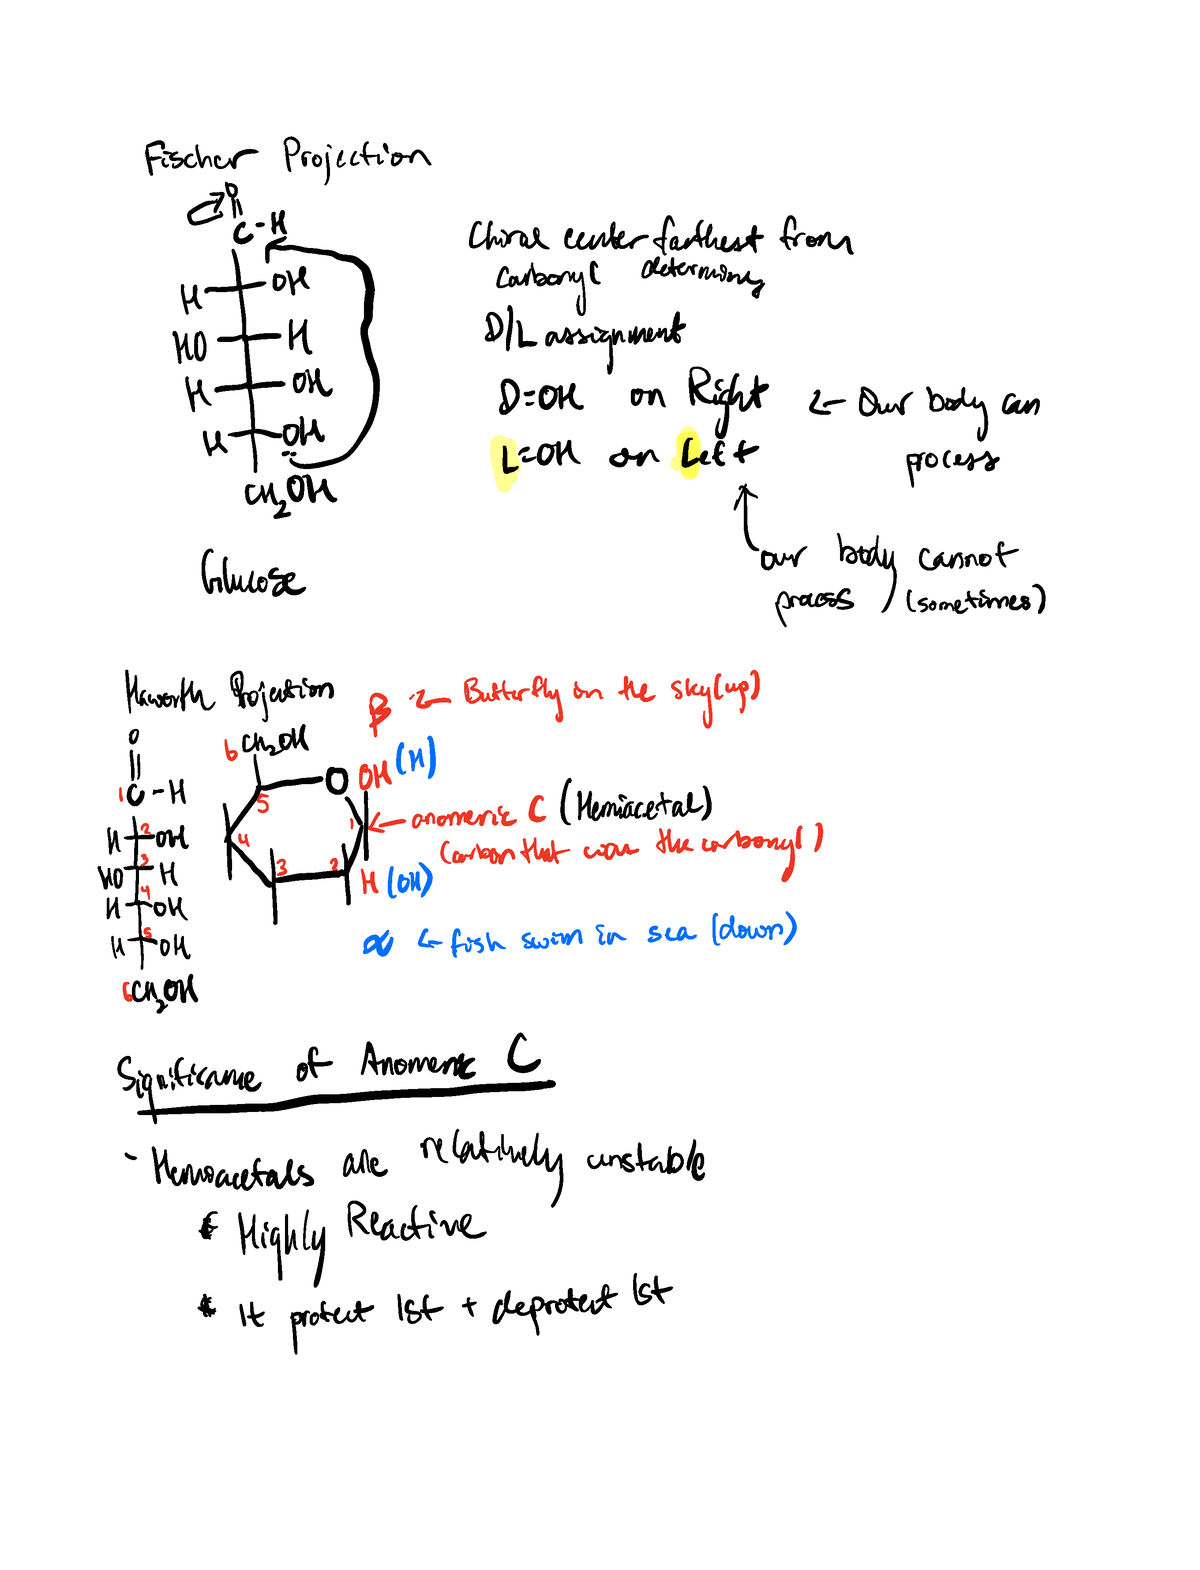 Fischer Projection
O
C-H
H OH
HO H
H OH
H OH
CH2OH
Glucose
Chiral center farthest from
carbonyl determines
D/L assignment
D=OH on Right ← Our body can
process
L=OH on Left
our body cannot
process (sometimes)
Haworth Projection
O
1C-H
H 2 OH
HO 3 H
4
H OH
H 5 OH
6CH2OH
β ← Butterfly in the sky (up)
6 CH2OH
O OH (H)
5
4
3
2
1
← anomeric C (Hemiacetal)
(carbon that was the carbonyl)
H (OH)
α ← fish swim in sea (down)
Significance of Anomeric C
- Hemiacetals are relatively unstable
* Highly Reactive
* It protect 1st + deprotect 1st